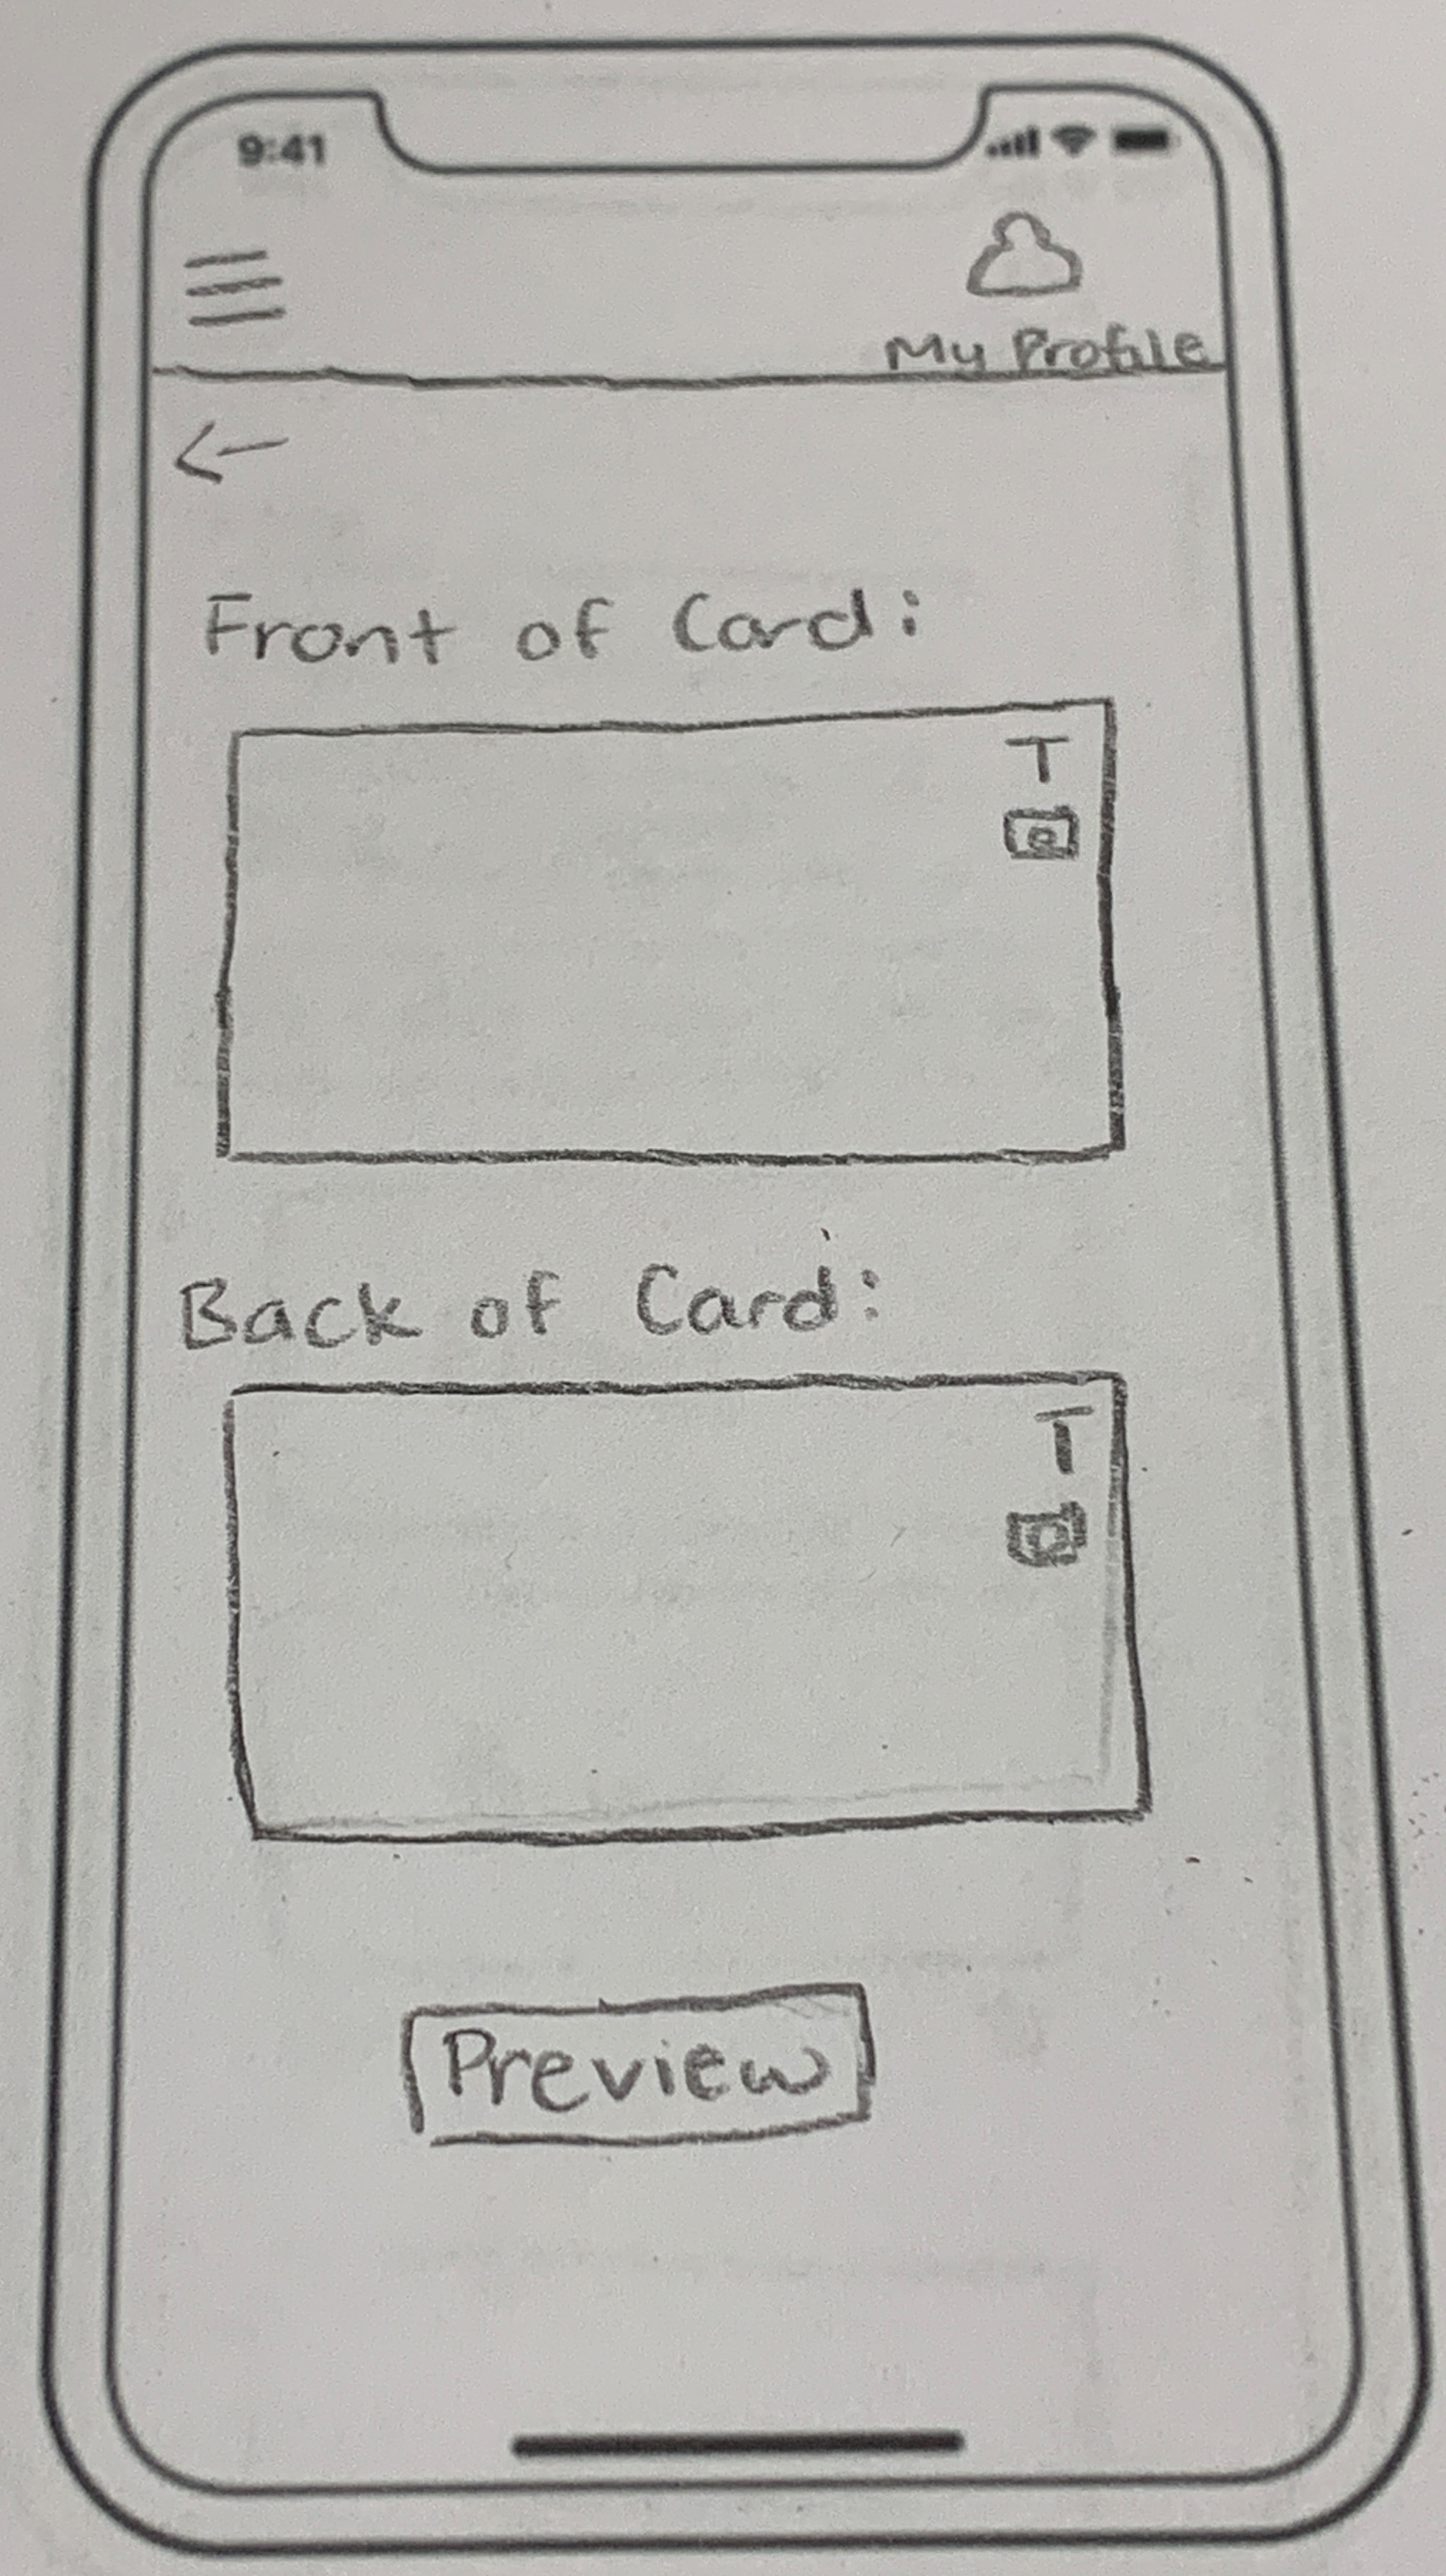 9:41
My Profile
Front of Card:
T
Back of Card:
T
Preview